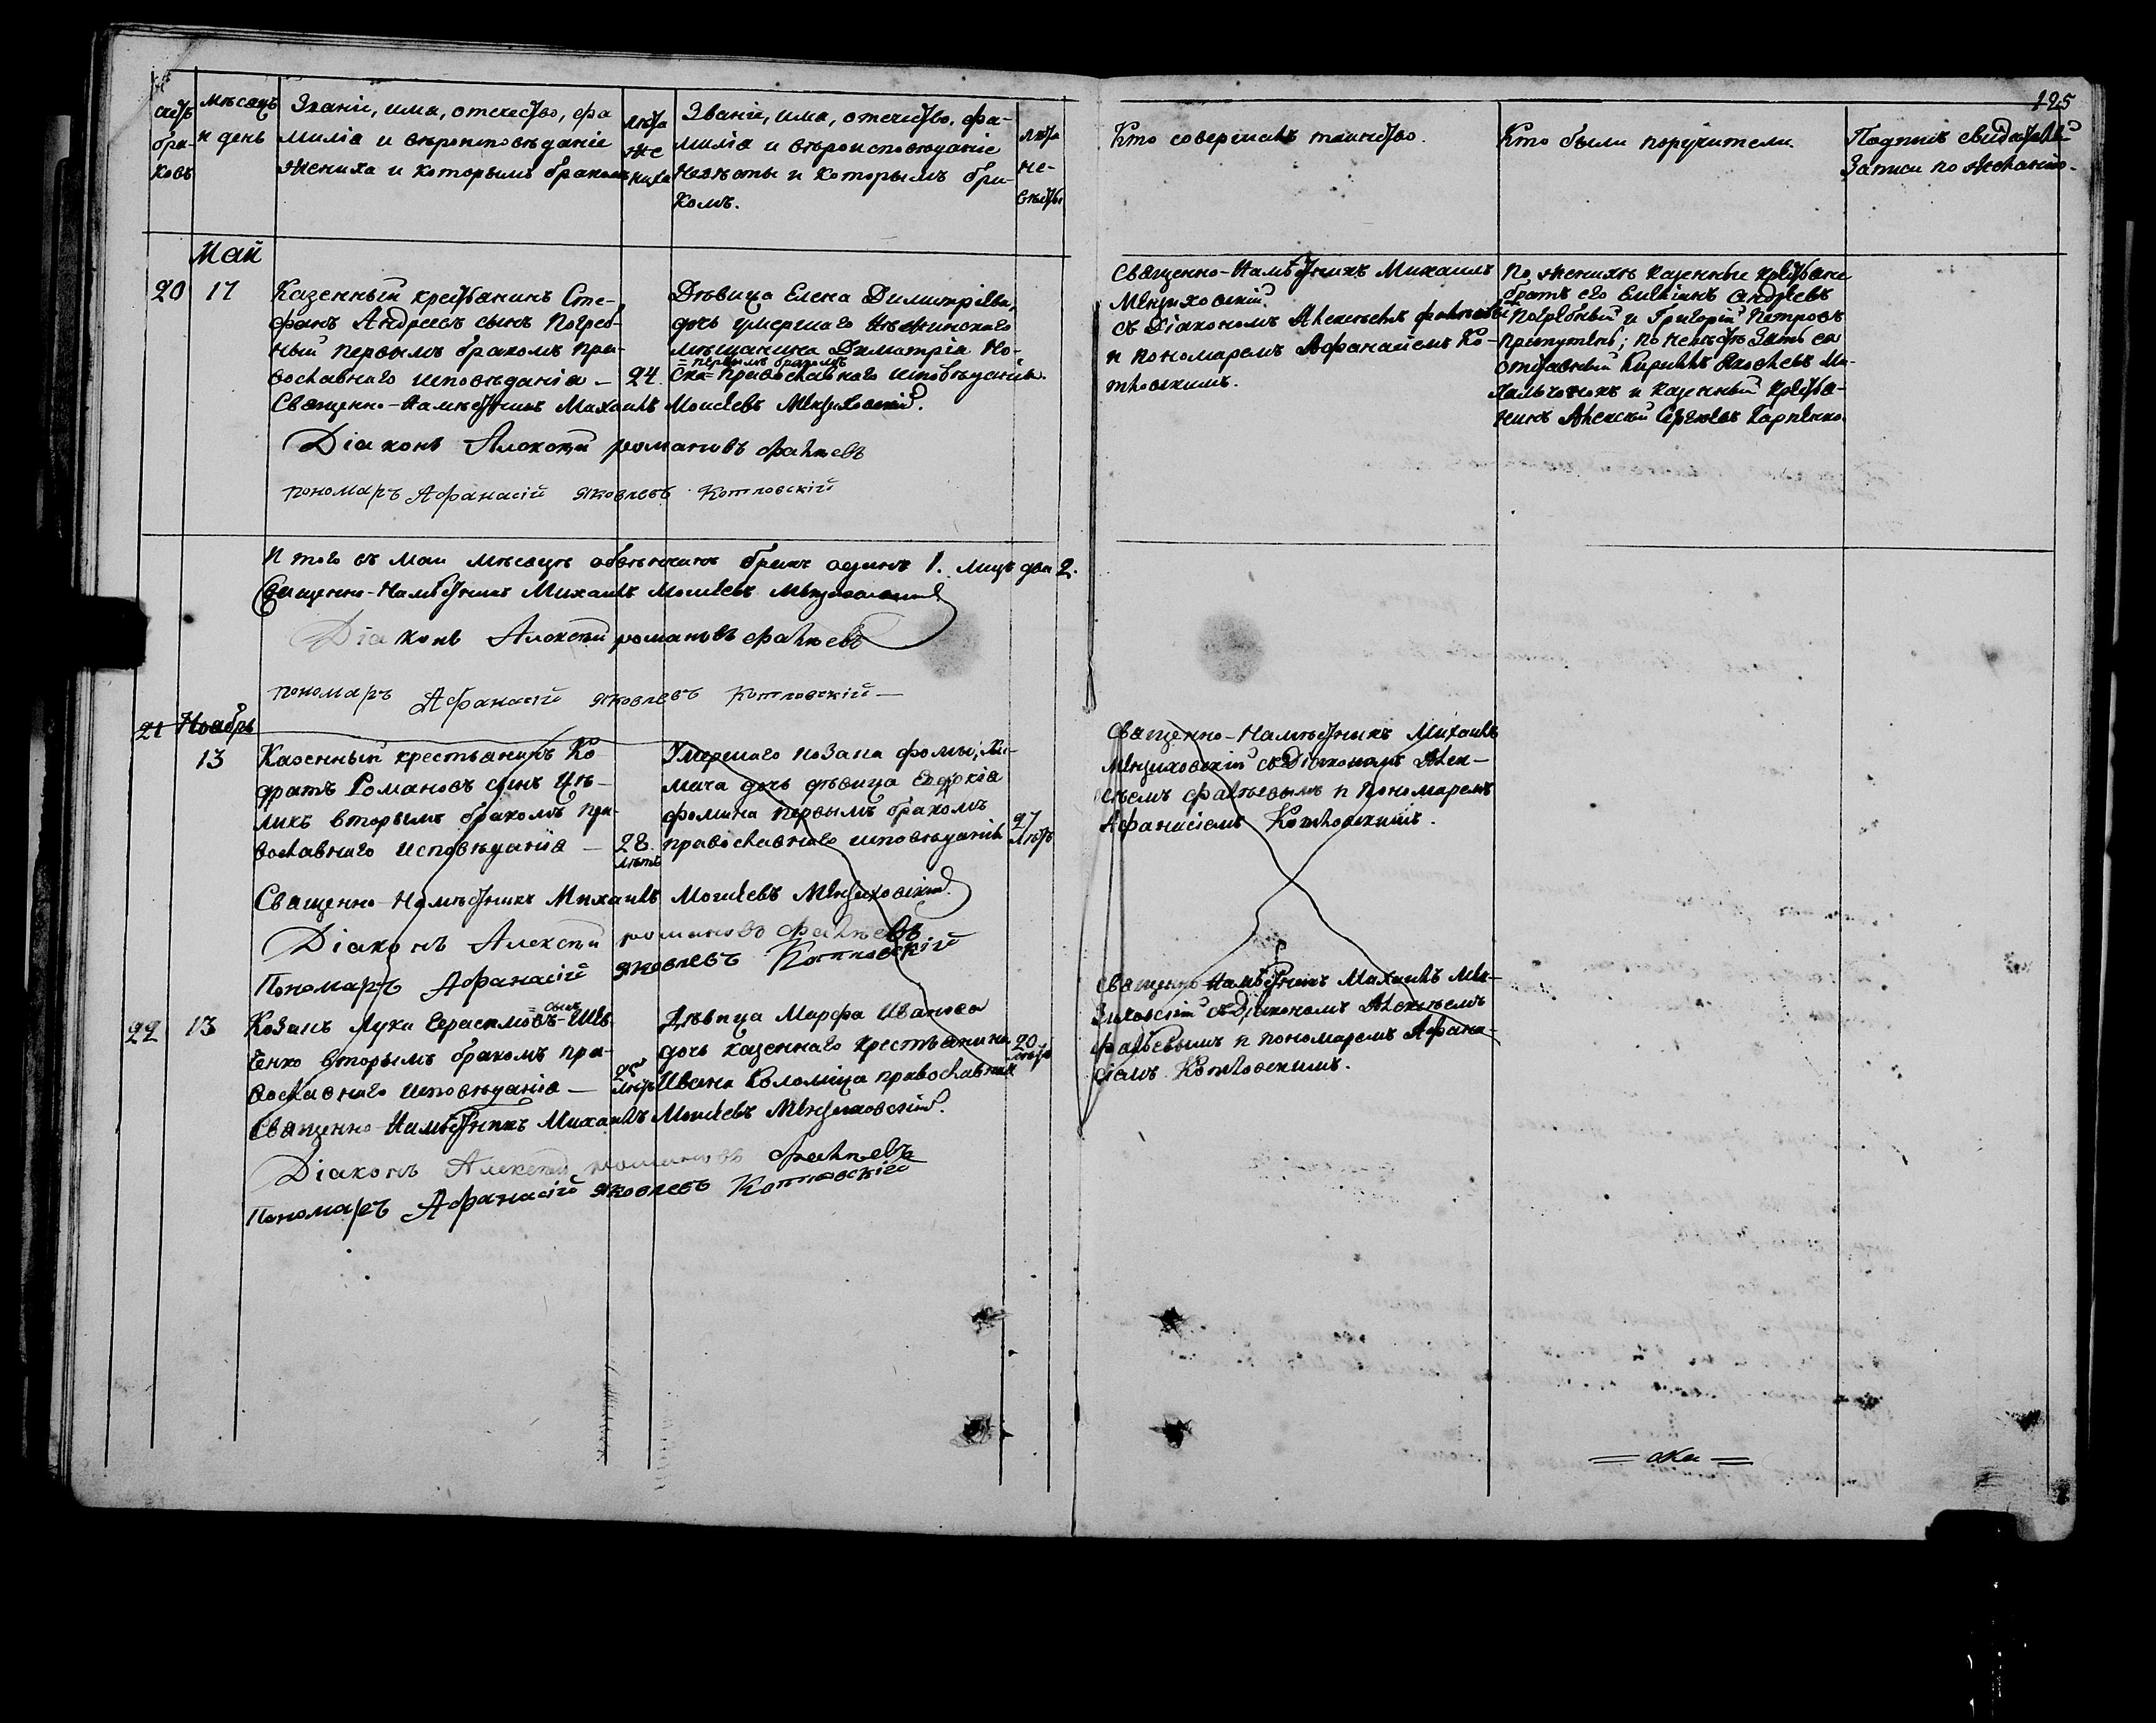 125
Счетъ браковъ
Мѣсяцъ и день
Званіе, имя, отечество, фа
милія и вѣроисповѣданіе
жениха и которымъ бракомъ
Лѣта жениха
Званіе, имя, отечество, фа-
милія и вѣроисповѣданіе
невѣсты и которымъ бра-
комъ.
Лѣта не-
вѣсты
Кто совершалъ таинство.
Кто были поручители.
Подпись свидѣтелей
записи по желанію.
Май
20 17
Казенный крестьянинъ Сте-
фанъ Андреевъ сынъ Погреб-
ный первымъ бракомъ пра-
вославнаго исповѣданія —
24.
Дѣвица Елена Димитріева,
дочь умершаго Нѣжинскаго
мѣщанина Димитрія
= первымъ бракомъ
православнаго исповѣданія.
Священно-Намѣстникъ Михаилъ Моисеевъ
Діаконъ Алексѣй романовъ
пономаръ Афанасій яковлевъ Котловскій
Священно-Намѣстникъ Михаилъ
съ Діакономъ Алексѣемъ
и пономаремъ Афанасіемъ Ко-
тловскимъ.
По женихѣ казенные крестьяне
братъ его Емеліанъ Андреевъ
Погребный и Григорій Петровъ
по невѣстѣ зять ея
отставный Кириллъ Яковлевъ
и казенный крестья-
нинъ Алексѣй Сергѣевъ Карпенко.
Итого въ маи мѣсяцѣ обвѣнчанъ бракъ одинъ 1. лицъ два 2.
Священно-Намѣстникъ Михаилъ Моисеевъ
Діаконъ Алексѣй романовъ
пономаръ Афанасій яковлевъ Котловскій —
21 Ноябрь
13
Казенный крестьянинъ Ко
дратъ Романовъ сынъ Цѣ-
ликъ вторымъ бракомъ пра-
вославнаго исповѣданія —
28.
лѣтъ
Умершаго козака Фомы
дочь дѣвица Евдокія
Фомина первымъ бракомъ
православнаго исповѣданія
27
лѣтъ
Священно-Намѣстникъ Михаилъ Моисеевъ
Діаконъ Алексѣй романовъ
Пономаръ Афанасій яковлевъ Котловскій
Священно-Намѣстникъ Михаилъ
съ Діакономъ Алек-
сѣемъ и Пономаремъ
Афанасіемъ Котловскимъ.
22 13
= сынъ
Козакъ Лука Герасимовъ Шев-
ченко вторымъ бракомъ пра-
вославнаго исповѣданія —
лѣтъ
Дѣвица Марфа Иванова
дочь казеннаго крестьянина
Ивана Коломіца православная
20
лѣтъ
Священно-Намѣстникъ Михаилъ Моисеевъ
Діаконъ Алексѣй романовъ
Пономаръ Афанасій яковлевъ Котловскій
Священно-Намѣстникъ Михаилъ
съ Діакономъ Алексѣемъ
и пономаремъ Афана-
сіемъ Котловскимъ.